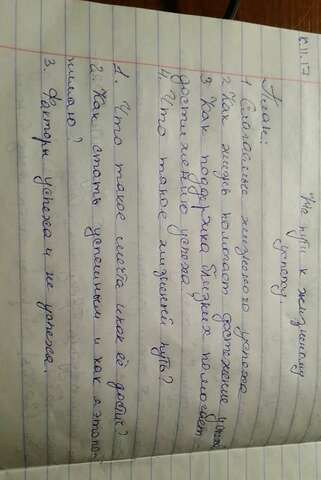 11.17
На пути к жизненому
успеху.
План:
1 Слагаемые жизненого успеха
2. Как жизнь помогает достежение успеха,
3. Как поддержка близких помогает
достижению успеха
4. Что такое жизненей путь?
1. Что такое мечта и как её достич?
2. Как стать успешным и как я этапом
пишаю?
3. Факторы успеха и не успеха.